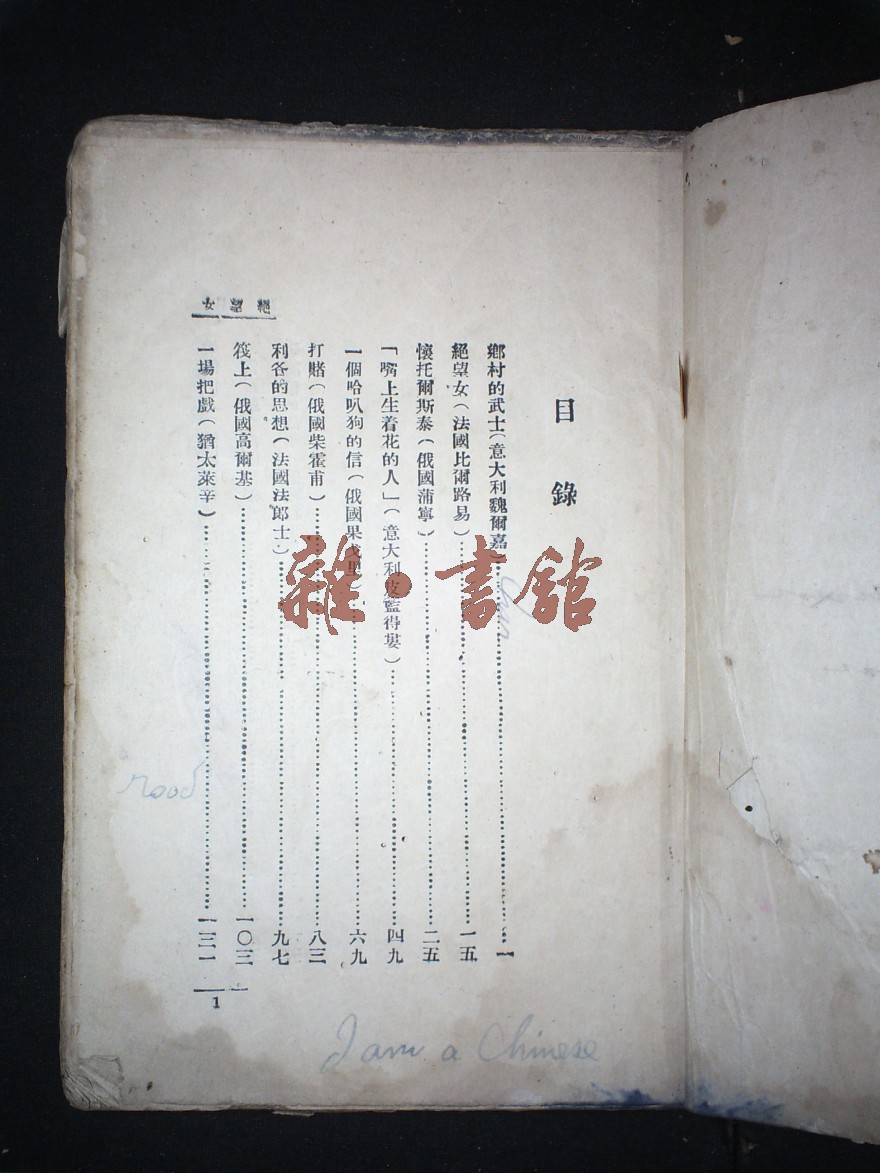 目錄
鄉村的武士(意大利魏爾嘉)……一
絕望女(法國比爾路易)……一五
懷托爾斯泰(俄國蒲寧)……二五
「嘴上生着花的人」(意大利皮藍得婁)……四九
一個哈叭狗的信(俄國果戈里)……六九
打賭(俄國柴霍甫)……八三
利各的思想(法國法郎士)……九七
筏上(俄國高爾基)……一〇三
一場把戲(猶太萊辛)……一三一
絕望女
1
雜·書館
rood
I am a Chinese